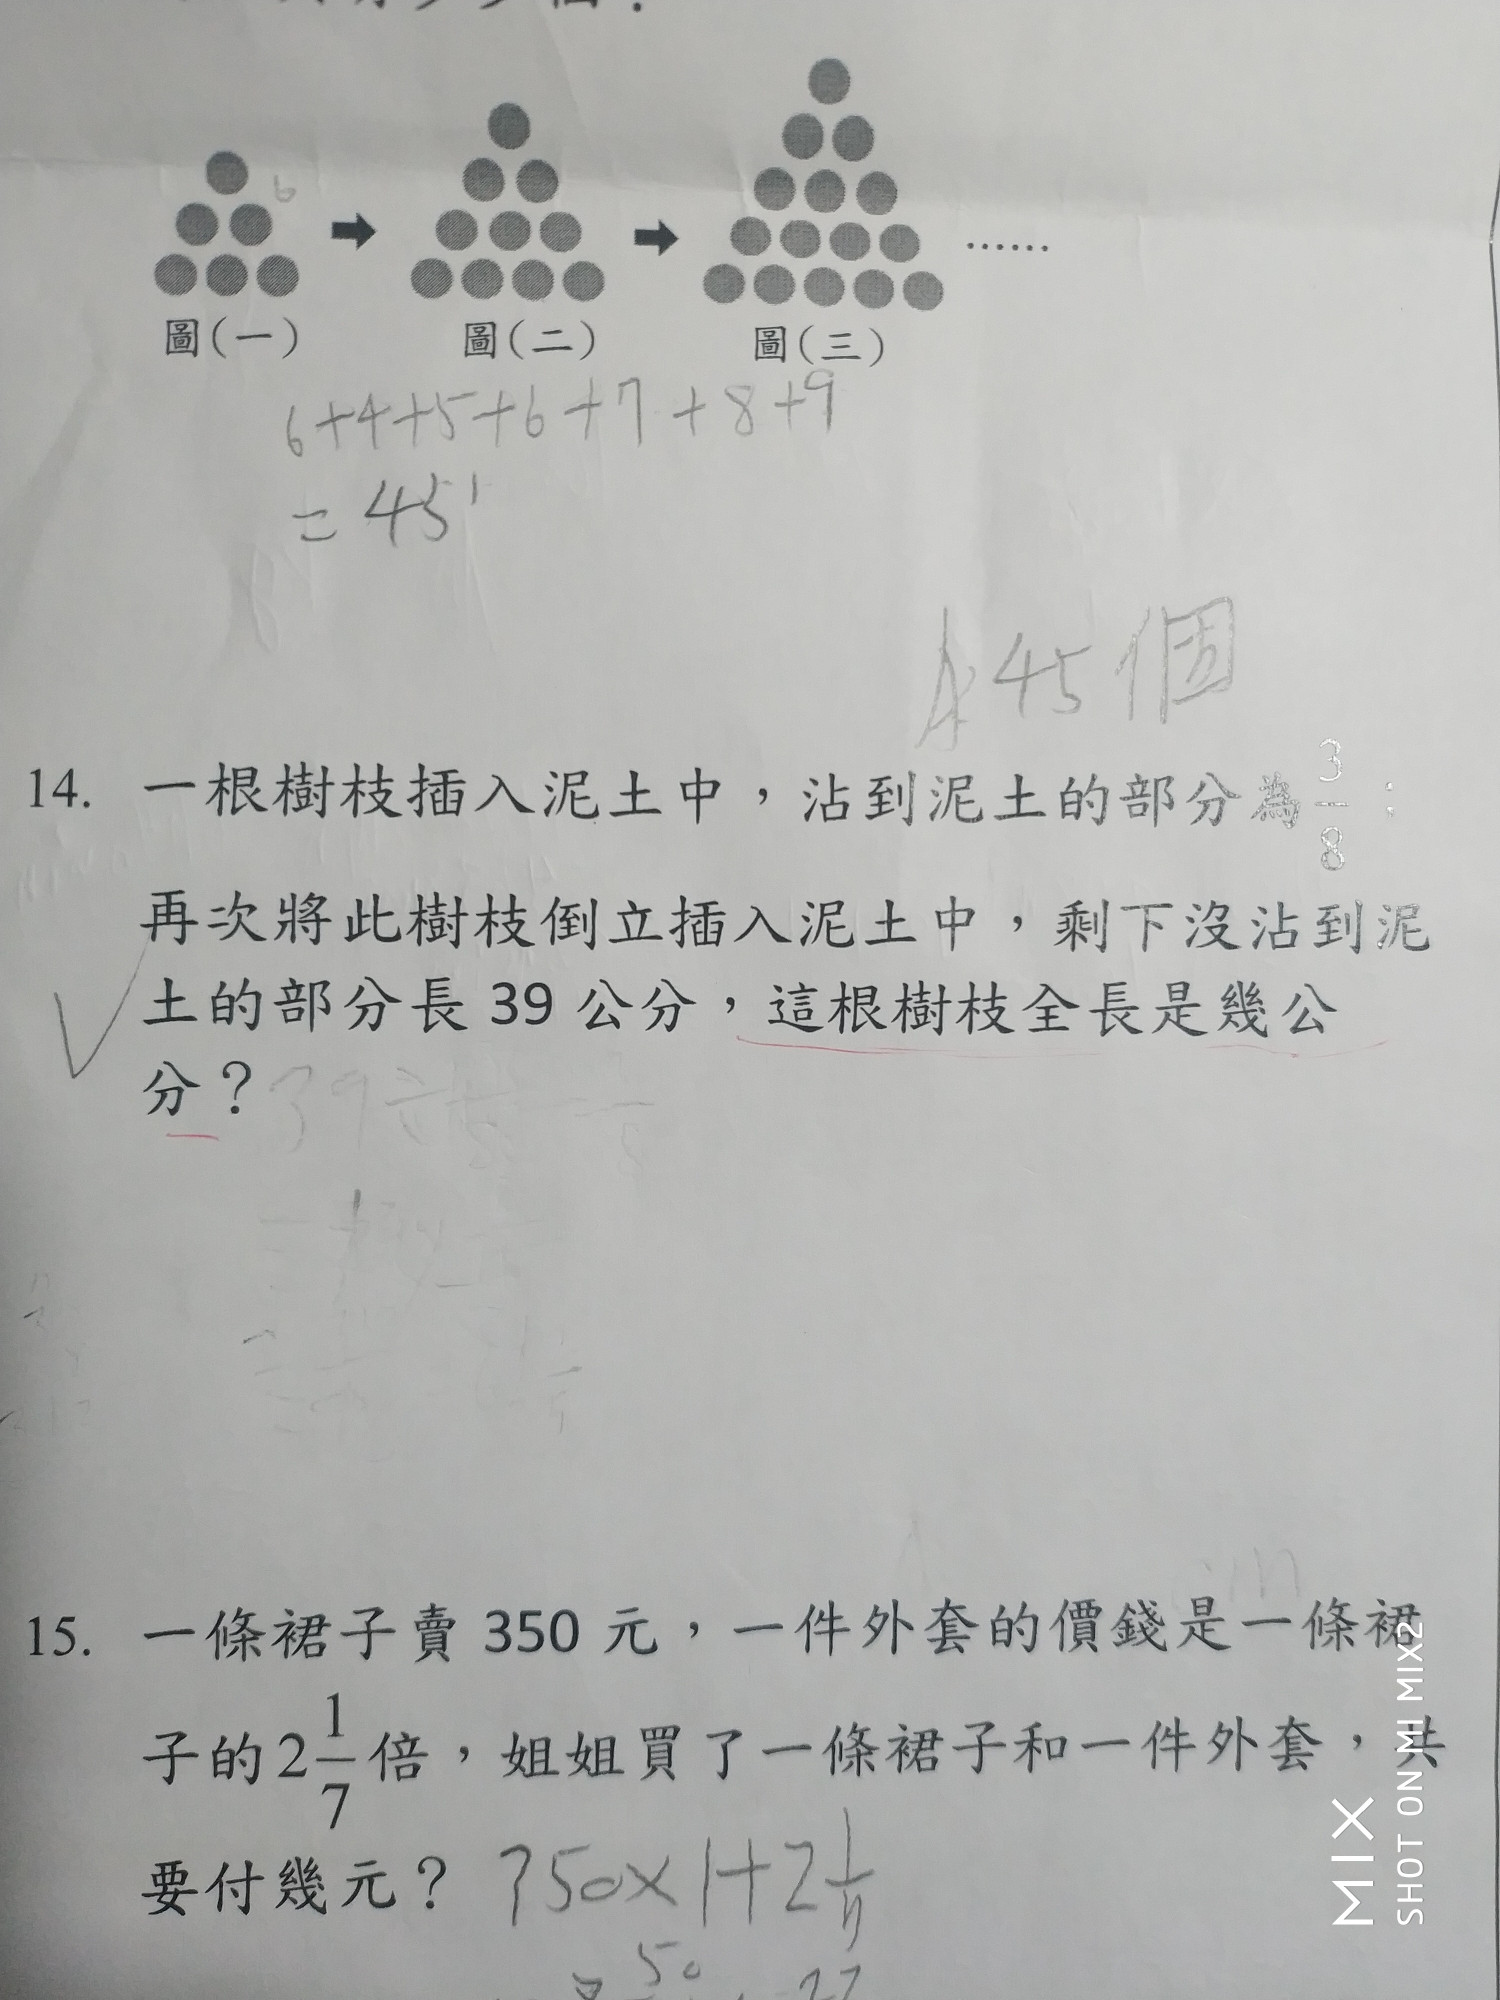 6
圖(一)
圖(二)
圖(三)
……
6+4+5+6+7+8+9
=45
A:45個
14. 一根樹枝插入泥土中，沾到泥土的部分為3/8；
再次將此樹枝倒立插入泥土中，剩下沒沾到泥
土的部分長 39 公分，這根樹枝全長是幾公
分？
15. 一條裙子賣 350 元，一件外套的價錢是一條裙
子的2 1/7倍，姐姐買了一條裙子和一件外套，共
要付幾元？
350×1+2 1/7
50
MIX
SHOT ON MI MIX2